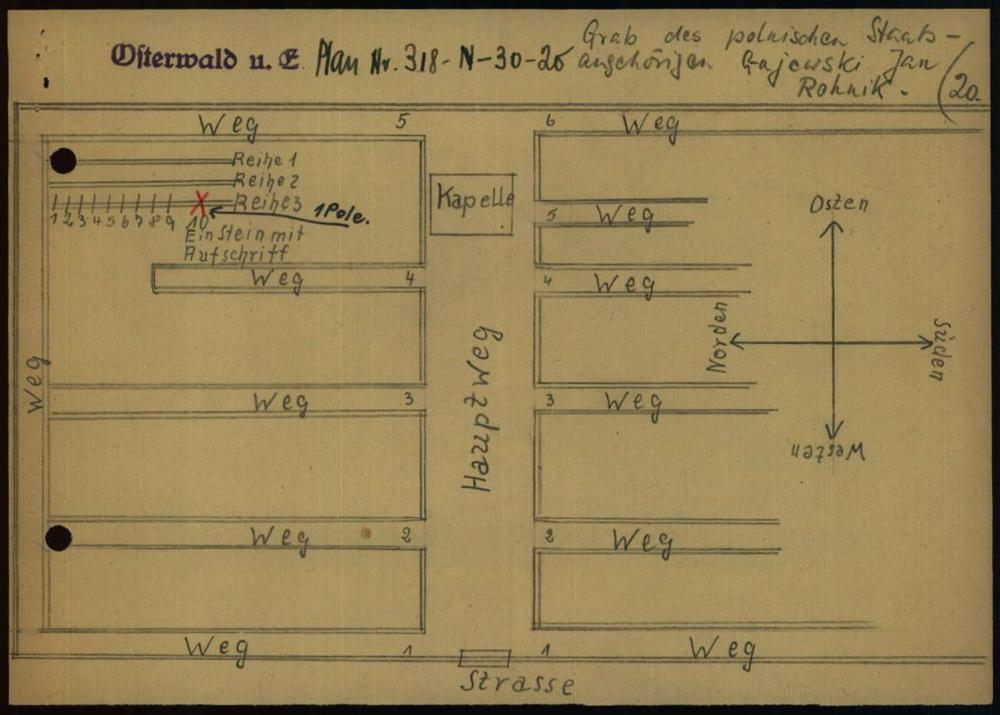 Osterwald u. E. Plan Nr. 318-N-30-20
Grab des polnischen Staats-
angehörigen Gajewski Jan
Rohnik.
(20.
Weg 5
6 Weg
Reihe 1
Reihe 2
Reihe 3
1 2 3 4 5 6 7 8 9 10
1 Pole.
Ein Stein mit
Aufschrift
Kapelle
5 Weg
Weg 4
4 Weg
Osten
Norden
Süden
Westen
Weg
Hauptweg
Weg 3
3 Weg
Weg 2
2 Weg
Weg 1
1 Weg
Strasse